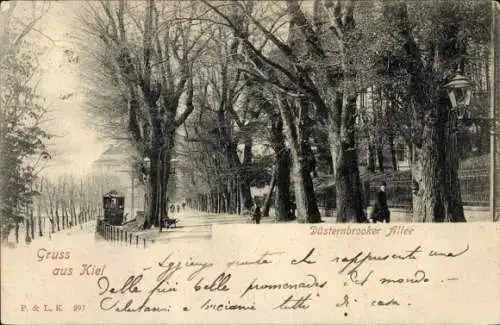 Düsternbrooker Allee
Gruss
aus Kiel
P. & L. K. 297
questa promenade rappresenta una
Delle più belle del mondo,
Salutami tutti di casa